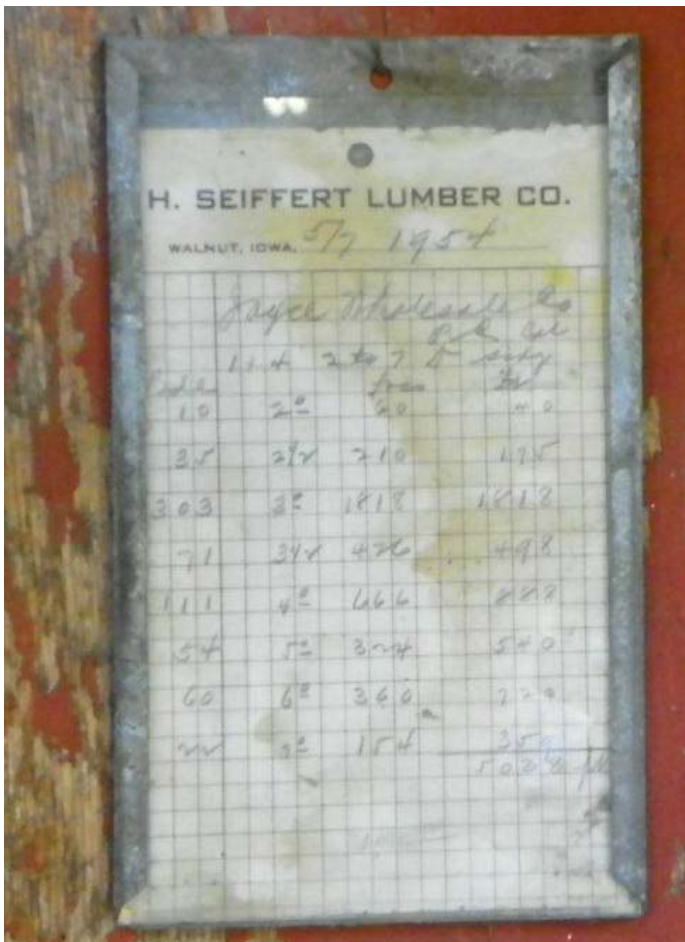 H. SEIFFERT LUMBER CO.
WALNUT, IOWA, 5/7 1954
Joyce Wholesale Co
11.4 2 to 7
10 2⁰ 60 40
35 2½ 210 175
303 3⁰ 1818 1818
71 3½ 426 498
111 4⁰ 666 888
54 5⁰ 324 540
60 6⁰ 360 720
22 154